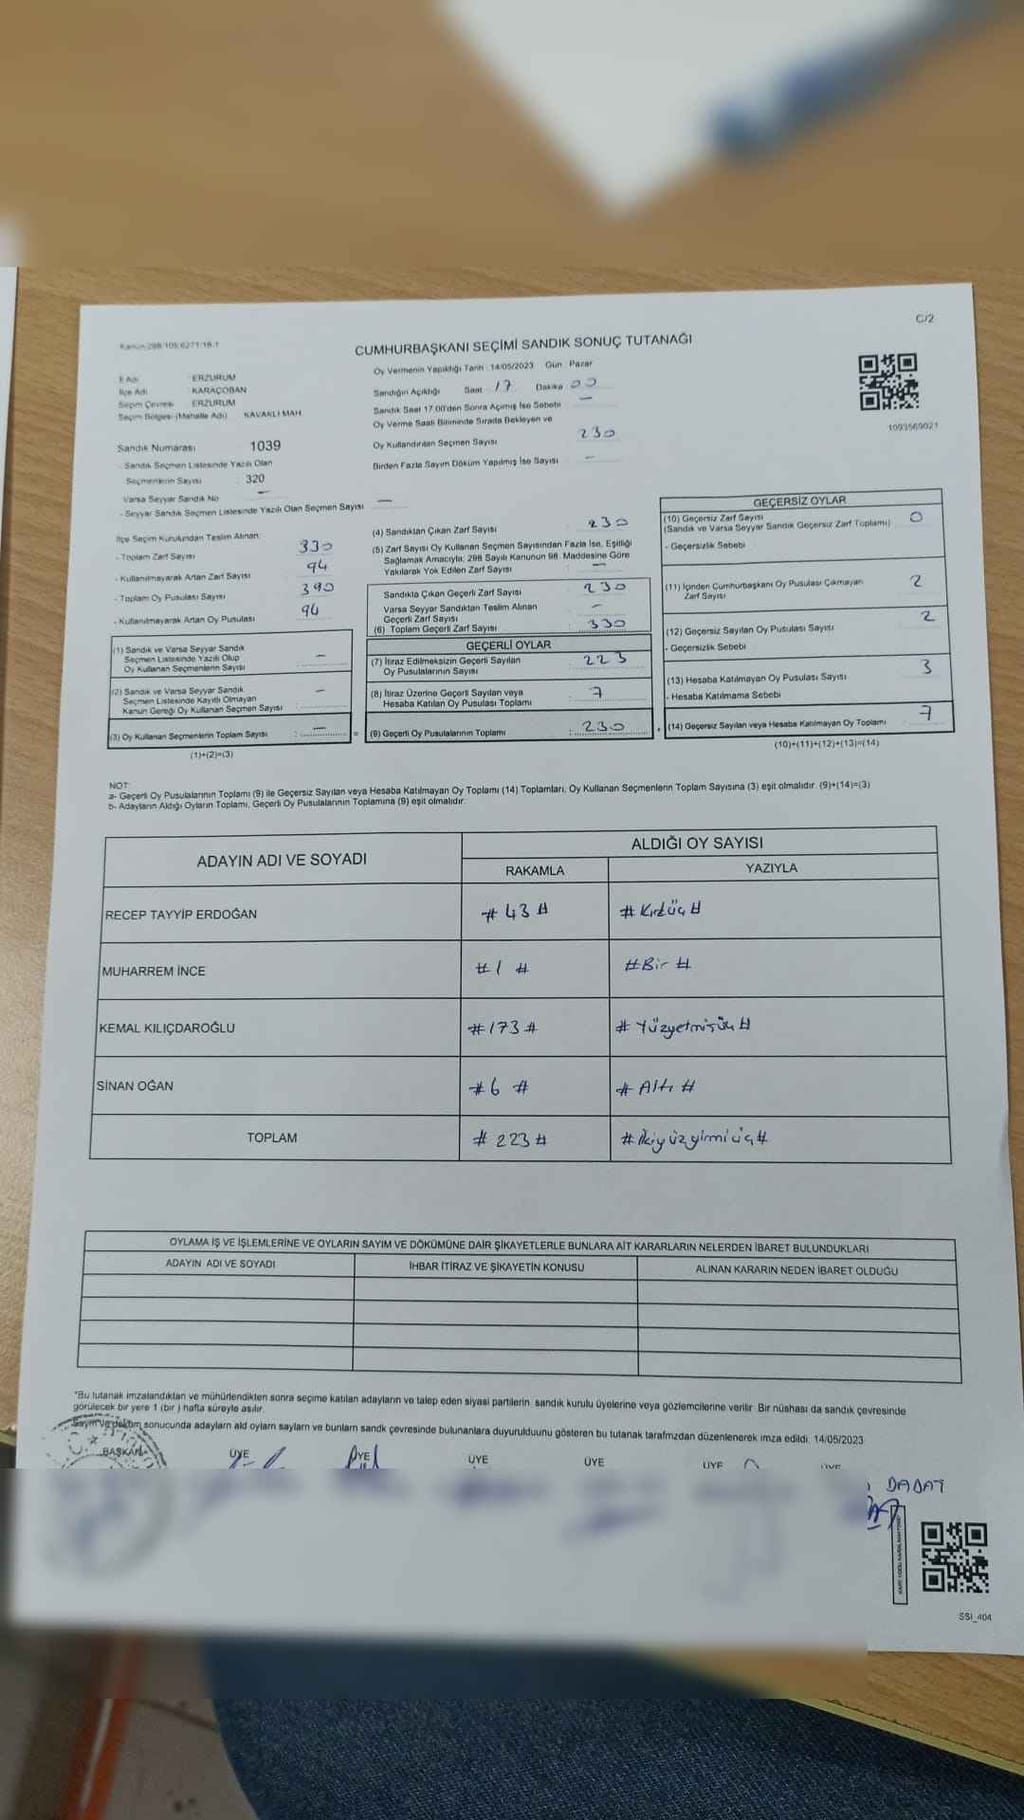 Kanun:298/105,6271/18.1
C/2
CUMHURBAŞKANI SEÇİMİ SANDIK SONUÇ TUTANAĞI
İl Adı ERZURUM
İlçe Adı KARAÇOBAN
Seçim Çevresi ERZURUM
Seçim Bölgesi (Mahalle Adı) KAVAKLI MAH.
Sandık Numarası 1039
- Sandık Seçmen Listesinde Yazılı Olan
Seçmenlerin Sayısı 320
Varsa Seyyar Sandık No –
- Seyyar Sandık Seçmen Listesinde Yazılı Olan Seçmen Sayısı –
Oy Vermenin Yapıldığı Tarih 14/05/2023 Gün Pazar
Sandığın Açıldığı Saat 17 Dakika 00
Sandık Saat 17.00'den Sonra Açılmış İse Sebebi –
Oy Verme Saati Bitiminde Sırada Bekleyen ve
Oy Kullandırılan Seçmen Sayısı 230
Birden Fazla Sayım Döküm Yapılmış İse Sayısı –
1093569021
İlçe Seçim Kurulundan Teslim Alınan:
- Toplam Zarf Sayısı 330
- Kullanılmayarak Artan Zarf Sayısı 94
- Toplam Oy Pusulası Sayısı 390
- Kullanılmayarak Artan Oy Pusulası 94
(1) Sandık ve Varsa Seyyar Sandık
Seçmen Listesinde Yazılı Olup
Oy Kullanan Seçmenlerin Sayısı –
(2) Sandık ve Varsa Seyyar Sandık
Seçmen Listesinde Kayıtlı Olmayan
Kanun Gereği Oy Kullanan Seçmen Sayısı –
(3) Oy Kullanan Seçmenlerin Toplam Sayısı : –
(1)+(2)=(3)
(4) Sandıktan Çıkan Zarf Sayısı 230
(5) Zarf Sayısı Oy Kullanan Seçmen Sayısından Fazla İse, Eşitliği
Sağlamak Amacıyla, 298 Sayılı Kanunun 98. Maddesine Göre
Yakılarak Yok Edilen Zarf Sayısı –
Sandıkta Çıkan Geçerli Zarf Sayısı 230
Varsa Seyyar Sandıktan Teslim Alınan
Geçerli Zarf Sayısı –
(6) Toplam Geçerli Zarf Sayısı 330
GEÇERLİ OYLAR
(7) İtiraz Edilmeksizin Geçerli Sayılan
Oy Pusulalarının Sayısı : 223
(8) İtiraz Üzerine Geçerli Sayılan veya
Hesaba Katılan Oy Pusulası Toplamı : 7
(9) Geçerli Oy Pusulalarının Toplamı : 230
GEÇERSİZ OYLAR
(10) Geçersiz Zarf Sayısı
(Sandık ve Varsa Seyyar Sandık Geçersiz Zarf Toplamı) 0
- Geçersizlik Sebebi
(11) İçinden Cumhurbaşkanı Oy Pusulası Çıkmayan
Zarf Sayısı 2
(12) Geçersiz Sayılan Oy Pusulası Sayısı 2
- Geçersizlik Sebebi
(13) Hesaba Katılmayan Oy Pusulası Sayısı 3
- Hesaba Katılmama Sebebi
(14) Geçersiz Sayılan veya Hesaba Katılmayan Oy Toplamı 7
(10)+(11)+(12)+(13)=(14)
NOT:
a- Geçerli Oy Pusulalarının Toplamı (9) ile Geçersiz Sayılan veya Hesaba Katılmayan Oy Toplamı (14) Toplamları, Oy Kullanan Seçmenlerin Toplam Sayısına (3) eşit olmalıdır. (9)+(14)=(3)
b- Adayların Aldığı Oyların Toplamı, Geçerli Oy Pusulalarının Toplamına (9) eşit olmalıdır.
ADAYIN ADI VE SOYADI ALDIĞI OY SAYISI
RAKAMLA YAZIYLA
RECEP TAYYİP ERDOĞAN #43# #Kırküç#
MUHARREM İNCE #1# #Bir#
KEMAL KILIÇDAROĞLU #173# #Yüzyetmişüç#
SİNAN OĞAN #6# #Altı#
TOPLAM #223# #ikiyüzyirmiüç#
OYLAMA İŞ VE İŞLEMLERİNE VE OYLARIN SAYIM VE DÖKÜMÜNE DAİR ŞİKAYETLERLE BUNLARA AİT KARARLARIN NELERDEN İBARET BULUNDUKLARI
ADAYIN ADI VE SOYADI İHBAR İTİRAZ VE ŞİKAYETİN KONUSU ALINAN KARARIN NEDEN İBARET OLDUĞU
"Bu tutanak imzalandıktan ve mühürlendikten sonra seçime katılan adayların ve talep eden siyasi partilerin, sandık kurulu üyelerine veya gözlemcilerine verilir. Bir nüshası da sandık çevresinde
görülecek bir yere 1 (bir ) hafta süreyle asılır.
Sayım ve döküm sonucunda adayların ald oyların sayların ve bunların sandk çevresinde bulunanlara duyurulduunu gösteren bu tutanak tarafmzdan düzenlenerek imza edildi. 14/05/2023
BAŞKAN ÜYE ÜYE ÜYE ÜYE ÜYE ÜYE
DADAT
SSI_404